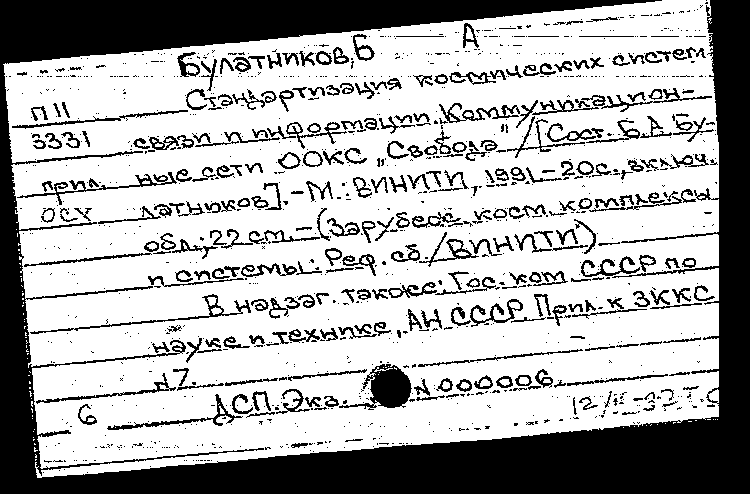 Булатников, Б А
П 11 Стандартизация космических систем
3331 связи и информации. Коммуникацион-
прил. ные сети ООКС „Свобода" / [Сост. Б. А Бу-
ОСУ латников]. – М.: ВИНИТИ, 1991 – 20с., включ.
обл.; 22 cm. – (Зарубеж. косм. комплексы
и системы: Реф. сб. / ВИНИТИ)
В надзаг. также: Гос. ком. СССР по
науке и технике, АН СССР. Прил. к ЗККС
N7.
6 ДСП. Экз. N 000006.